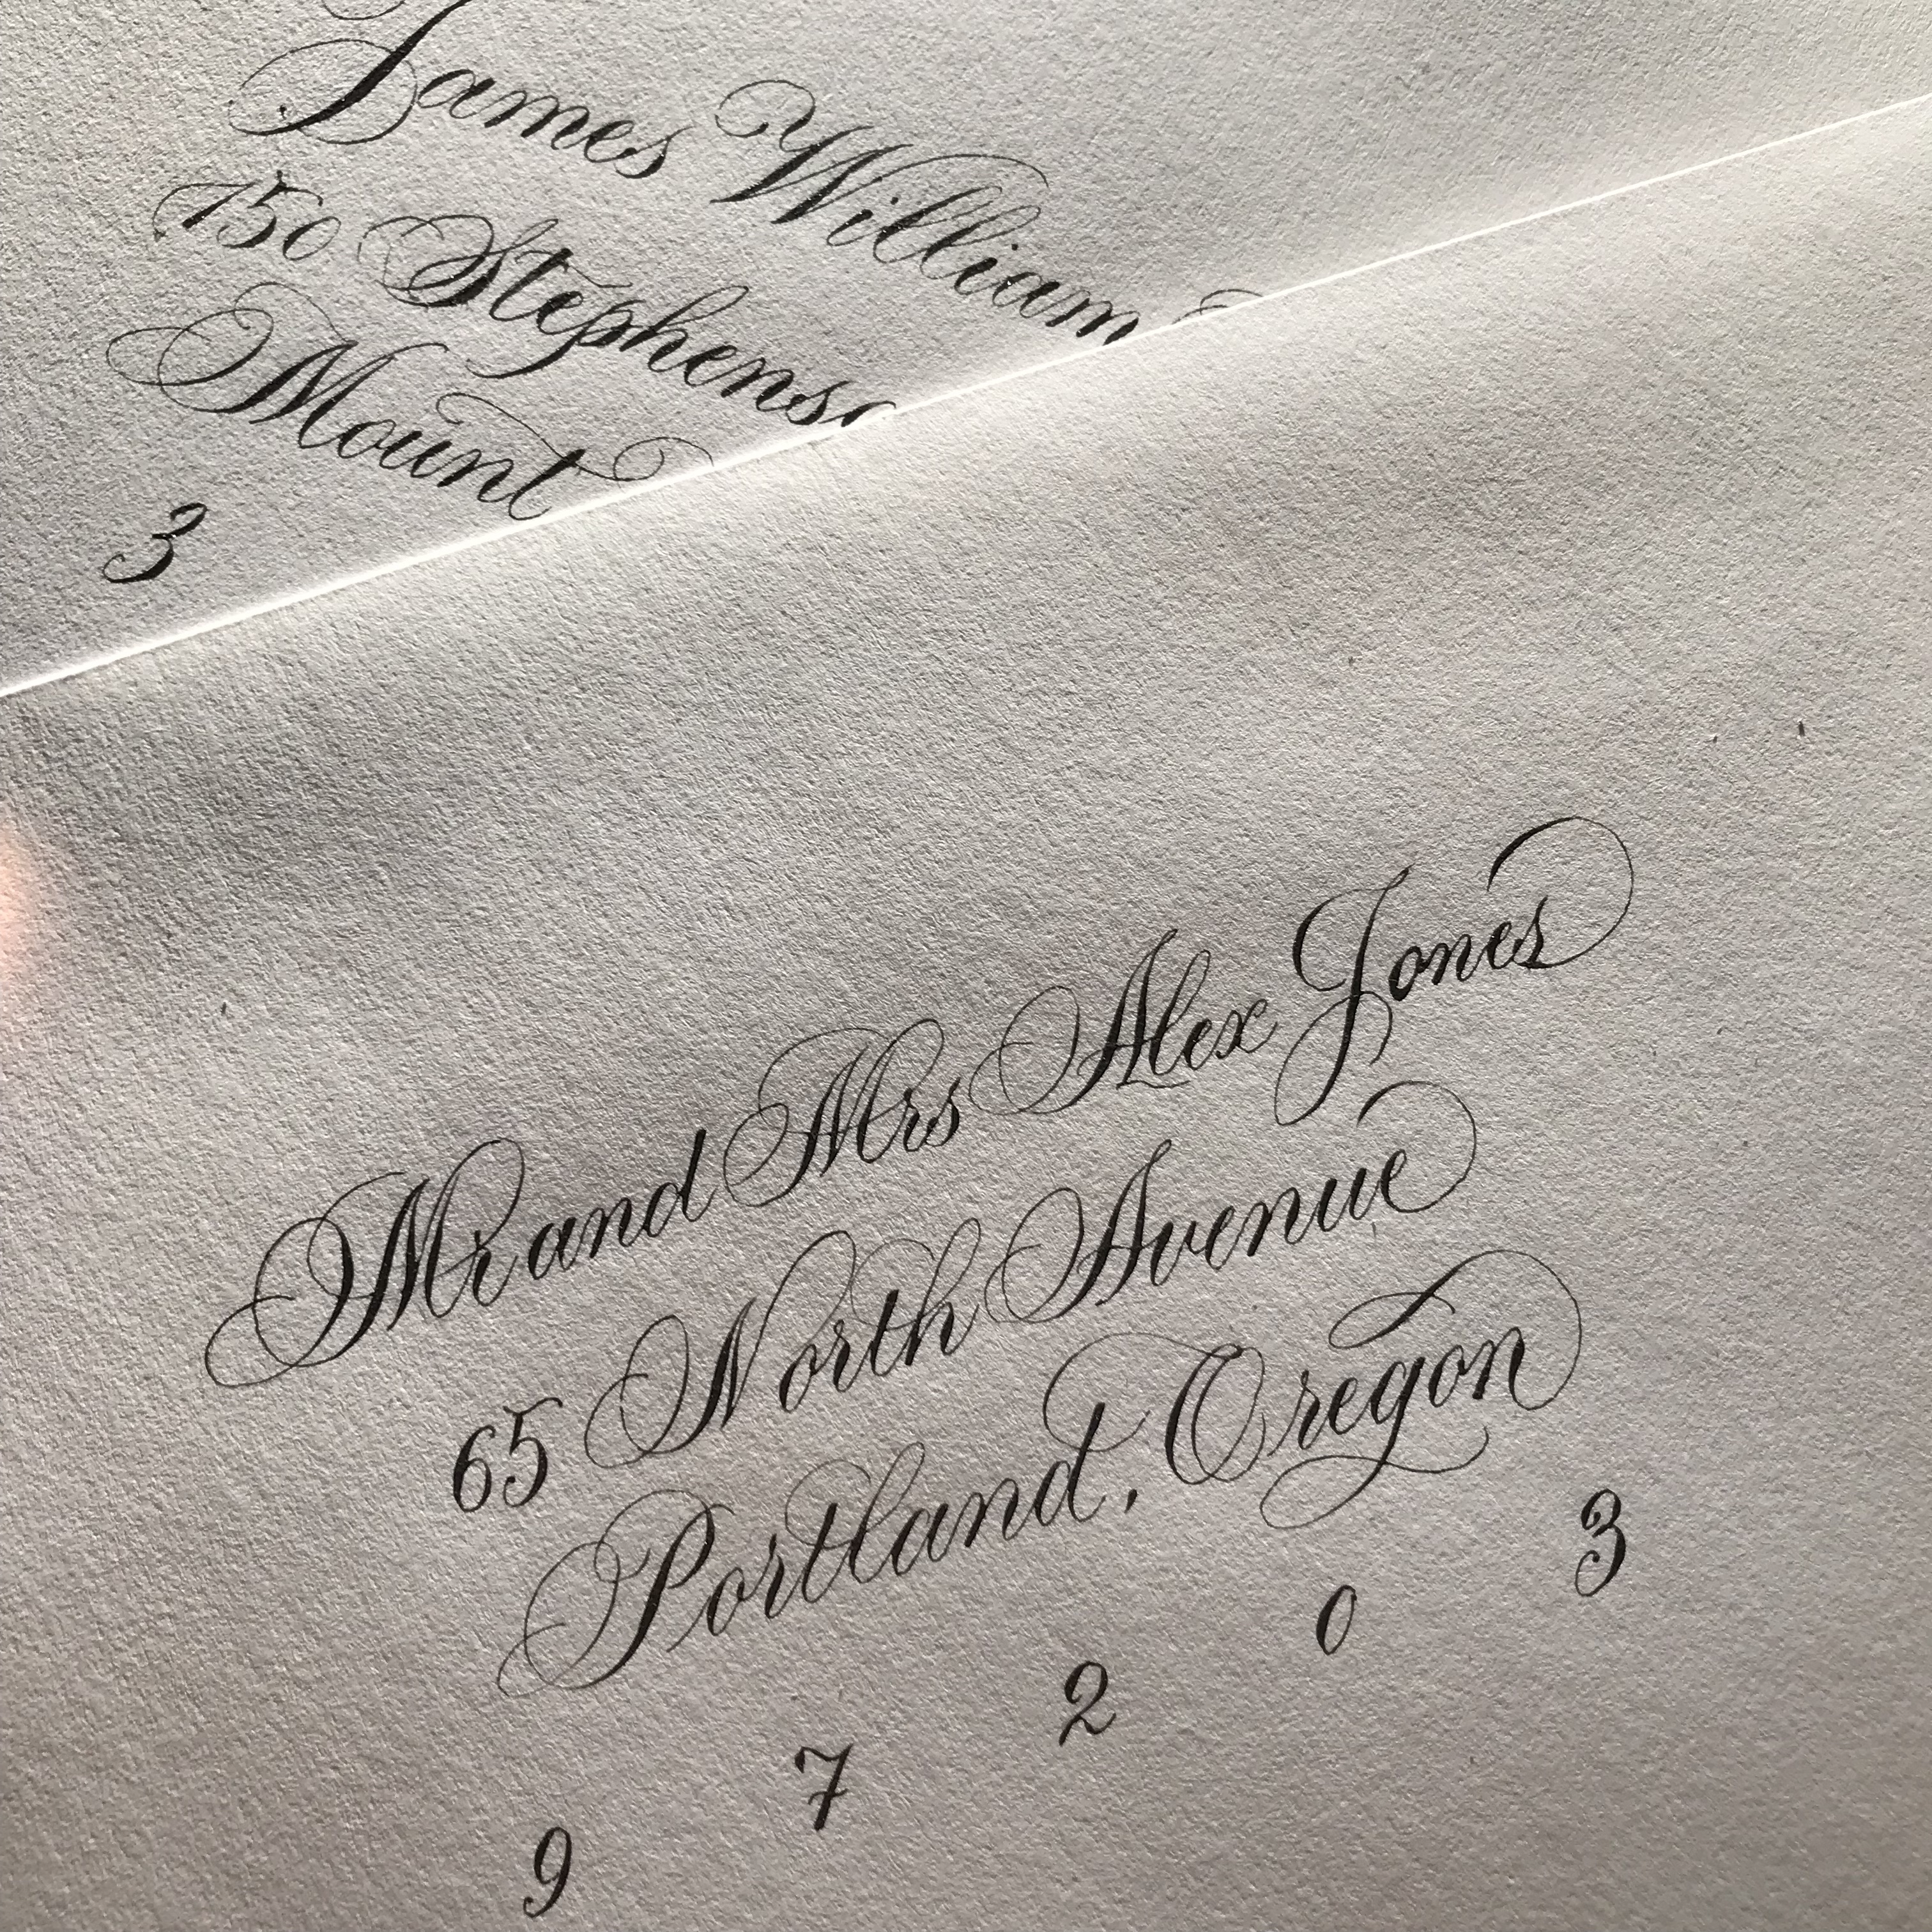 James William
150 Stephenso
Mount
3
Mr and Mrs Alex Jones
65 North Avenue
Portland, Oregon
9 7 2 0 3